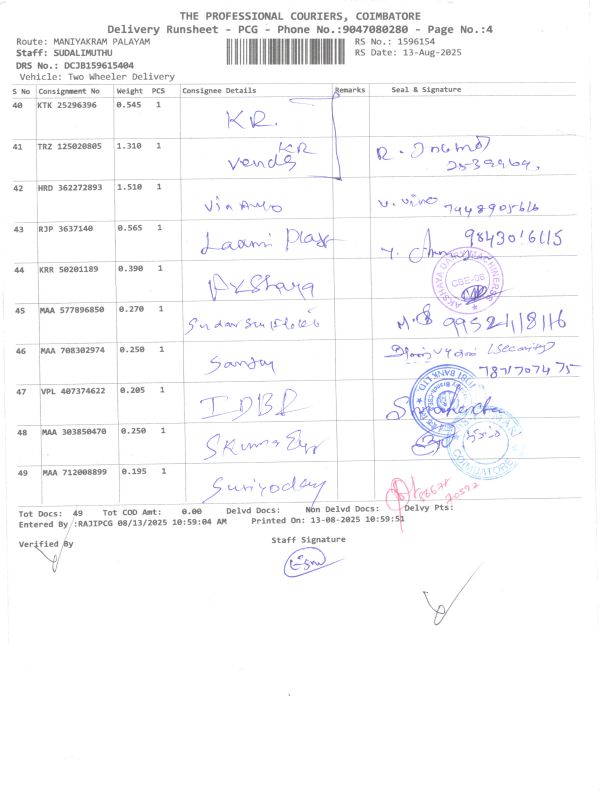 THE PROFESSIONAL COURIERS, COIMBATORE
Delivery Runsheet - PCG - Phone No.:9047080280 - Page No.:4
Route: MANIYAKRAM PALAYAM RS No.: 1596154
Staff: SUDALIMUTHU RS Date: 13-Aug-2025
DRS No.: DCJB159615404
Vehicle: Two Wheeler Delivery
S No Consignment No Weight PCS Consignee Details Remarks Seal & Signature
40 KTK 25296396 0.545 1 KR.
41 TRZ 125020805 1.310 1 KR R.
42 HRD 362272893 1.510 1 V. Vino 7448905616
43 RJP 3637140 0.565 1 Laxmi 9843016115
44 KRR 50201189 0.390 1 Akshaya CBE-06
45 MAA 577896850 0.270 1 M.
46 MAA 708302974 0.250 1 Sanjay (Security)
7871707475
47 VPL 407374622 0.205 1 IDBI
48 MAA 303850470 0.250 1 SKumar COIMBATORE
49 MAA 712008899 0.195 1 Suriyoday
Tot Docs: 49 Tot COD Amt: 0.00 Delvd Docs: Non Delvd Docs: Delvy Pts:
Entered By :RAJIPCG 08/13/2025 10:59:04 AM Printed On: 13-08-2025 10:59:51
Verified By Staff Signature